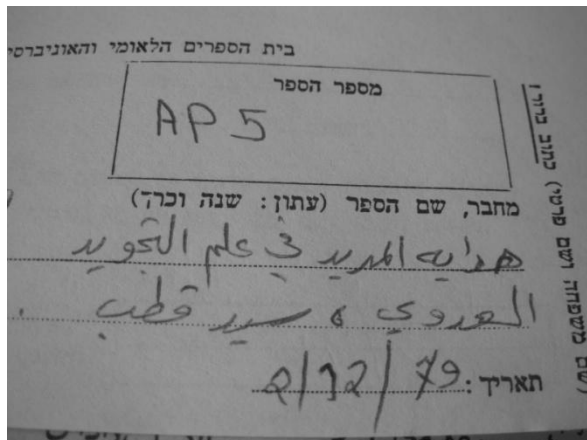 בית הספרים הלאומי והאוניברסי
מספר הספר
AP 5
מחבר, שם הספר (עתון: שנה וכרך)
هداية المريد في علم التجويد
العدوي، سيد قطب
תאריך: 2/12/79
כתוב ברור!
(שם משפחה ושם פרטי)